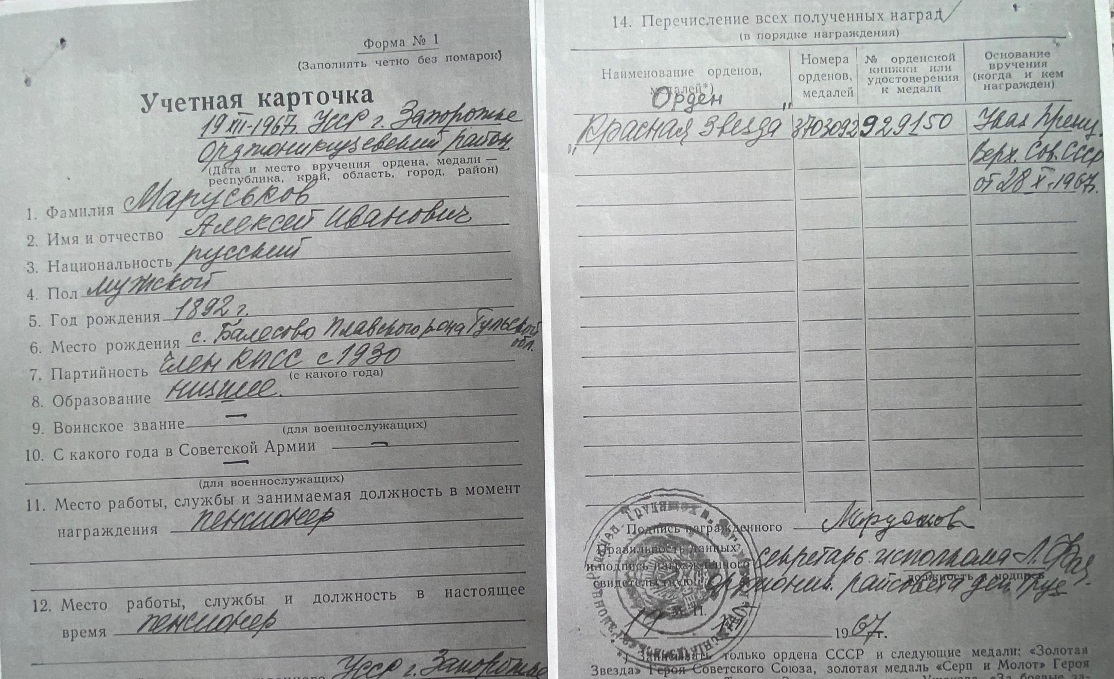 Форма № 1
(Заполнять четко без помарок)
Учетная карточка
19 XII-1967. УССР г. Запорожье
Орджоникидзевский район
(Дата и место вручения ордена, медали —
республика, край, область, город, район)
1. Фамилия Маруськов
2. Имя и отчество Алексей Иванович
3. Национальность русский
4. Пол мужской
5. Год рождения 1892 г.
6. Место рождения с. Балесово Плавского рона Тульской обл.
7. Партийность член КПСС с 1930
(с какого года)
8. Образование низшее.
9. Воинское звание —
(для военнослужащих)
10. С какого года в Советской Армии —
—
(для военнослужащих)
11. Место работы, службы и занимаемая должность в момент
награждения пенсионер
12. Место работы, службы и должность в настоящее
время пенсионер
УССР г. Запорожье
14. Перечисление всех полученных наград
(в порядке награждения)
Наименование орденов, медалей*)
Номера орденов, медалей
№ орденской книжки или удостоверения к медали
Основание вручения (когда и кем награжден)
Орден
„Красная Звезда" 3703092 929150 Указ През.
Верх. Сов. СССР
от 28 X-1967.
Подпись награжденного Маруськов
Правильность данных
и подпись награжденного
свидетельствую
секретарь исполкома
райсовета деп. труд
должность подпись
М. П.
1967 г.
только ордена СССР и следующие медали: «Золотая
Звезда» Героя Советского Союза, золотая медаль «Серп и Молот» Героя